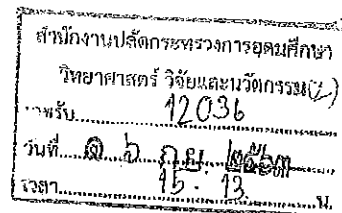 สำนักงานปลัดกระทรวงการอุดมศึกษา
วิทยาศาสตร์ วิจัยและนวัตกรรม(2)
เลขรับ........12036
วันที่...๑ ๖ ก.ย. ๒๕๖๓
เวลา........15.13........น.